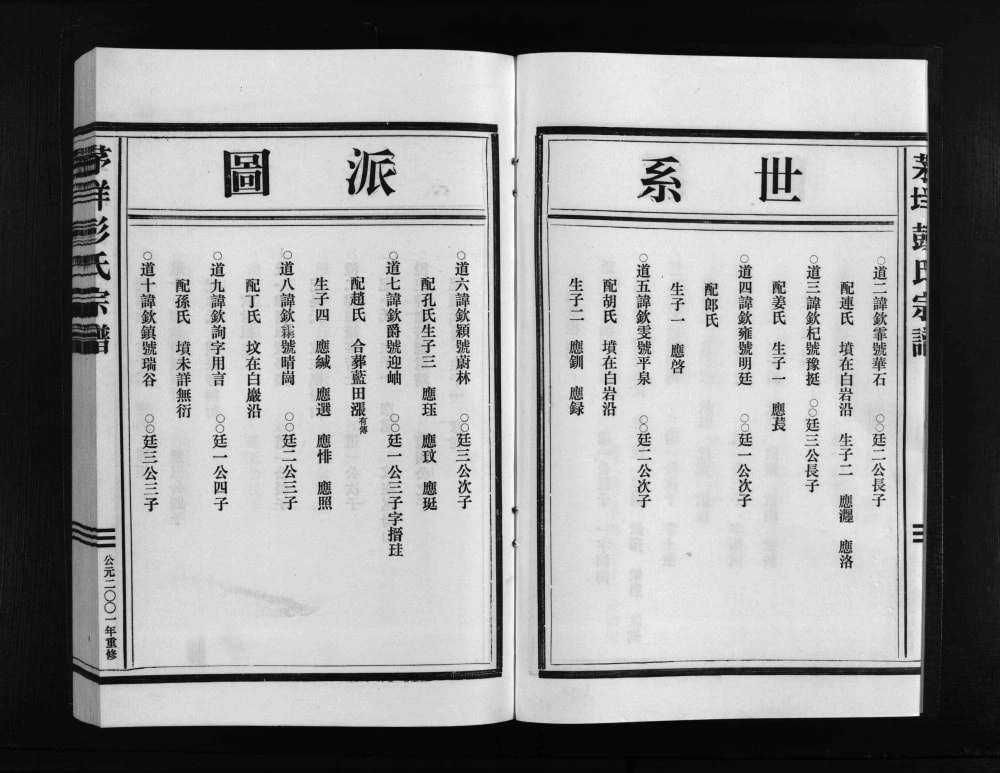 世系
○道二諱欽霏號華石　○○廷二公長子
配連氏　墳在白岩沿　生子二　應瀝　應洛
○道三諱欽杞號豫挺　○○廷三公長子
配姜氏　生子一　應萇
○道四諱欽雍號明廷　○○廷一公次子
配郎氏
生子一　應啓
○道五諱欽雯號平泉　○○廷二公次子
配胡氏　墳在白岩沿
生子二　應釧　應録
派圖
○道六諱欽穎號蔚林　○○廷三公次子
配孔氏生子三　應珏　應玟　應珽
○道七諱欽爵號迎岫　○○廷一公三子字搢珪
配趙氏　合葬藍田漲有傳
○道八諱欽霈號晴崗　○○廷二公三子
生子四　應鍼　應選　應悱　應照
配丁氏　坟在白巖沿
○道九諱欽詢字用言　○○廷一公四子
配孫氏　墳未詳無衍
○道十諱欽鎮號瑞谷　○○廷三公三子
彭氏宗譜
公元二○○一年重修